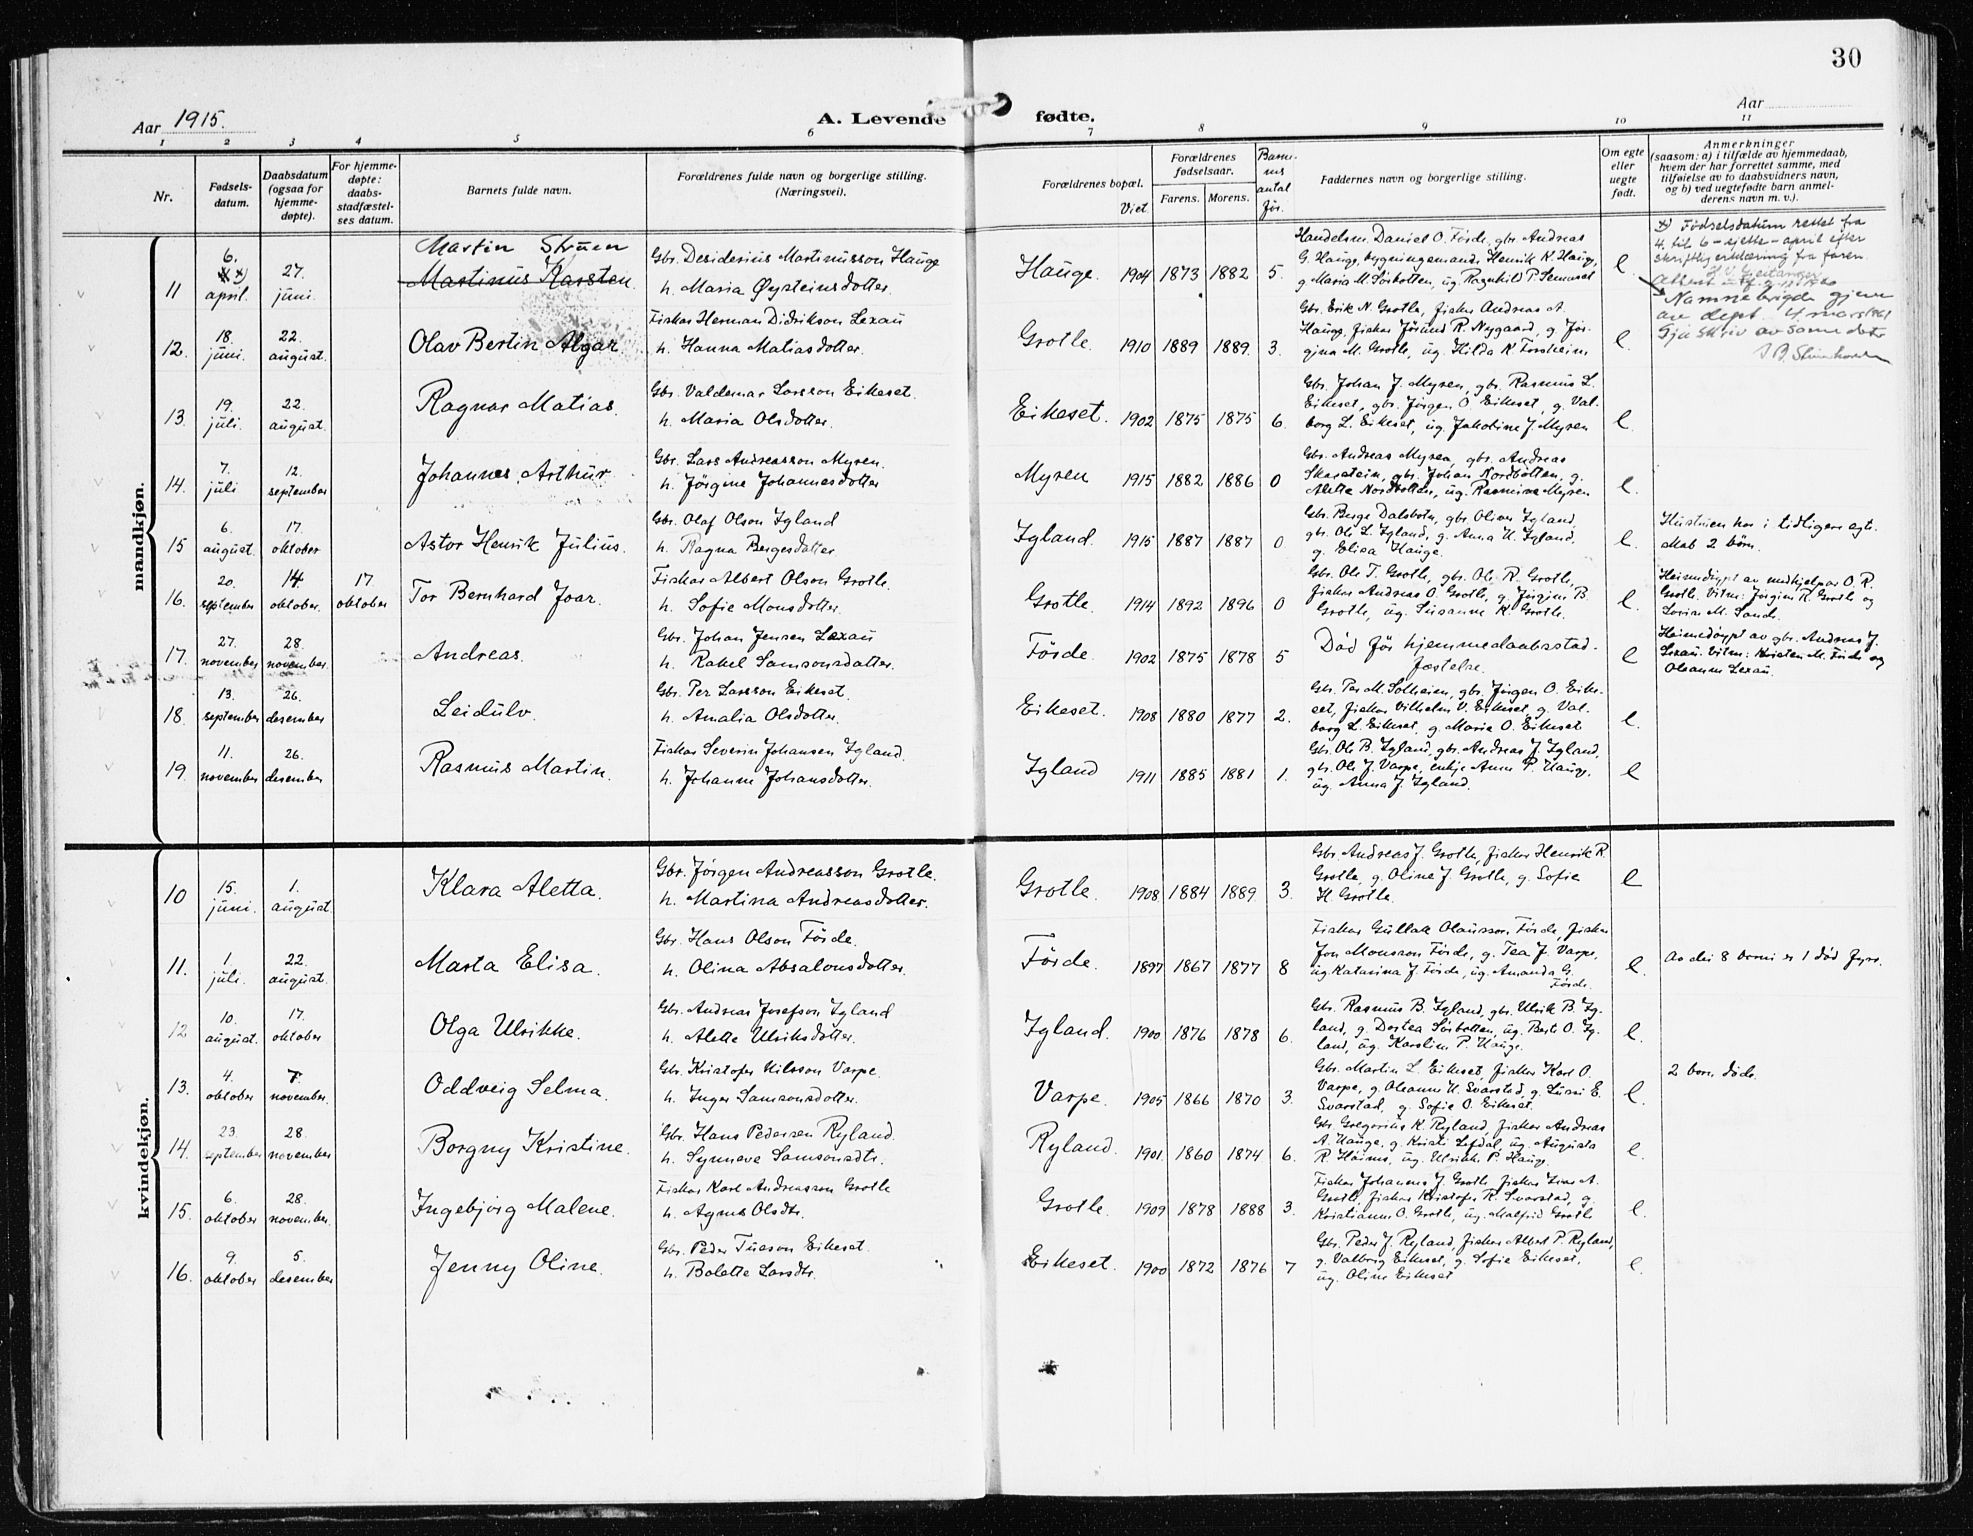 30
Aar 1915.
A. Levende fødte.
Aar
1 2 3 4 5 6 7 8 9 10 11
Nr.
Fødsels-
datum.
Daabsdatum
(ogsaa for
hjemme-
døpte).
For hjemme-
døpte:
daabs-
stadfæstel-
ses datum.
Barnets fulde navn.
Forældrenes fulde navn og borgerlige stilling.
(Næringsvei).
Forældrenes bopæl.
Viet.
Forældrenes
fødselsaar.
Farens. Morens.
Barne-
nes
antal
før.
Faddernes navn og borgerlige stilling.
Om egte
eller
uegte
født.
Anmerkninger
(saasom: a) i tilfælde av hjemmedaab,
hvem der har forrettet samme, med
tilføielse av to daabsvidners navn,
og b) ved uegtefødte barn anmel-
derens navn m. v.).
mandkjøn.
11
6.
april.
27.
juni.
Martin Struen
Martinus Karsten.
Gbr. Desiderius Martinusson Hauge
h. Maria Øysteinsdotter.
Hauge. 1904 1873 1882 5.
Handelsm. Daniel O. Förde, gbr. Andreas
G. Hauge, bygningsmand Henrik K. Hauge,
g. Maria M. Sørbotten, ug. Ragnhild P. Semmset
e.
x) Fødselsdatum rettet fra
4. til 6 - sjette - april efter
skriftlig erklæring fra faren.
Namnebrigde gjeve
av dept. 4 mars 1961
Sjå skriv av same dato
12.
18.
juni.
22.
august.
Olav Bertin Algar.
Fiskar Herman Didrikson Lexau
h. Hanna Matiasdotter.
Grotle. 1910 1889 1889. 3.
Gbr. Erik N. Grotle, fiskar Andreas A.
Hauge, fiskar Jörund R. Nygaard, g. Jør-
gina M. Grotle, ug. Hilda K. Forsheim
e.
13.
19.
juli.
22.
august.
Ragnar Matias.
Gbr. Valdemar Larsson Eikeset.
h. Maria Olsdotter.
Eikeset. 1902 1875 1875 6.
Gbr. Johan J. Myren, gbr. Rasmus L.
Eikeset, gbr. Jørgen O. Eikeset, g. Val-
borg L. Eikeset, ug. Jakobine J. Myren
e.
14.
7.
juli
12.
september
Johannes Arthur
Gbr. Lars Andreasson Myren.
h. Jørgine Johannesdotter
Myren 1915 1882 1886 0
Gbr. Andreas Myren, gbr. Andreas
Skarstein, gbr. Johan Nordbotten, g.
Alette Nordbotten, ug. Rasmine Myren
e.
15
6.
august.
17.
oktober
Astor Henrik Julius.
Gbr. Olaf Olson Igland
h. Ragna Bergesdotter
Igland. 1915 1887 1887 0.
Gbr. Berge Dalsbotn, gbr. Oliver Igland,
gbr. Ole L. Igland, g. Anna H. Igland,
g. Elisa Hauge.
e.
Hustruen har i tidligere egt.
skab 2 børn.
16.
20.
september
14.
oktober.
17.
oktober
Tor Bernhard Joar.
Fiskar Albert Olson Grotle.
h. Sofie Monsdotter.
Grotle. 1914 1892 1896 0
Gbr. Ole T. Grotle, gbr. Ole R. Grotle,
fiskar Andreas O. Grotle, g. Jørgine B.
Grotle, ug. Susanne K. Grotle.
e.
Heimedöypt av medhjelpar O. R.
Grotle. Vitne: Jørgine R. Grotle og
Lovise M. Sande.
17.
27.
november
28.
november.
Andreas.
Gbr. Johan Jensen Lexau
h. Rakel Samsonsdotter.
Förde. 1902 1875 1878 5
Död før hjemmedaabsstad-
fæstelse.
e
Heimedöypt av gbr. Andreas J.
Lexau. Vitne: Kristen M. Förde og
Oleanne Lexau.
18.
13.
september
26.
desember
Leidulv.
Gbr. Per Larsson Eikeset.
h. Amalia Olsdotter.
Eikeset. 1908 1880 1877 2.
Gbr. Per M. Solheim, gbr. Jörgen O. Eike-
set, fiskar Vilhelm V. Eikeset, g. Val-
borg L. Eikeset, g. Maria O. Eikeset
e.
19.
11.
november
26.
desember
Rasmus Martin.
Fiskar Severin Johansen Igland.
h. Johanne Johansdotter.
Igland 1911 1885 1881 1.
Gbr. Ole B. Igland, gbr. Andreas J. Igland,
gbr. Ole J. Varpe, enkje Anne P. Hauge,
ug. Anna J. Igland.
e
kvindekjøn.
10
15.
juni.
1.
august.
Klara Aletta.
Gbr. Jörgen Andreasson Grotle.
h. Martina Andreasdotter.
Grotle. 1908 1884 1889 3.
Gbr. Andreas J. Grotle, fiskar Henrik R.
Grotle, g. Oline J. Grotle, g. Sofie
H. Grotle.
e
11.
1.
juli.
22.
august.
Marta Elisa.
Gbr. Hans Olson Förde.
h. Olina Absalonsdotter.
Förde. 1897 1867 1877 8
Fiskar Gullak Olausson Förde, fiskar
Jon Monsson Förde, g. Tea J. Varpe,
ug. Katarina J. Förde, ug. Amanda G.
Förde.
e.
Av dei 8 borni er 1 död fyrr.
12
10.
august.
17.
oktober
Olga Ulrikke.
Gbr. Andreas Josefson Igland
h. Alette Ulriksdotter.
Igland. 1900 1876 1878 6.
Gbr. Rasmus B. Igland, gbr. Ulrik B. Ig-
land, g. Dortea Sörbotten, ug. Berte O. Ig-
land, ug. Karoline P. Hauge.
e.
13.
4.
oktober
7.
november.
Oddveig Selma.
Gbr. Kristofer Nilsson Varpe.
h. Inger Samsonsdotter.
Varpe. 1905 1866 1870 3.
Gbr. Martin L. Eikeset, fiskar Karl O.
Varpe, g. Oleanne H. Svarstad, g. Lusie E.
Svarstad, g. Sofie O. Eikeset.
e.
2 born döde.
14.
23.
september
28.
november
Borgny Kristine.
Gbr. Hans Pedersen Ryland.
h. Synneve Samsonsdtr.
Ryland. 1901 1860 1874 6.
Gbr. Gregorius K. Ryland, fiskar Andreas
A. Hauge, g. Kristi Lefdal, ug. Augusta
R. Haines, ug. Ulrikke P. Hauge.
e.
15.
6.
oktober
28.
november.
Ingebjörg Malene.
Fiskar Karl Andreasson Grotle
h. Agnes Olsdtr.
Grotle. 1909 1878 1888 3.
Fiskar Johannes J. Grotle, fiskar Ivar A.
Grotle, fiskar Kristofer R. Svarstad, g.
Kristianne O. Grotle, ug. Malfrid Grotle
e.
16.
9.
oktober
5.
desember
Jenny Oline.
Gbr. Peder Tueson Eikeset.
h. Bolette Larsdtr.
Eikeset. 1900 1872 1876 7
Gbr. Peder J. Ryland, fiskar Albert P. Ryland,
g. Valborg Eikeset, g. Sofie Eikeset,
ug. Oline Eikeset
e.